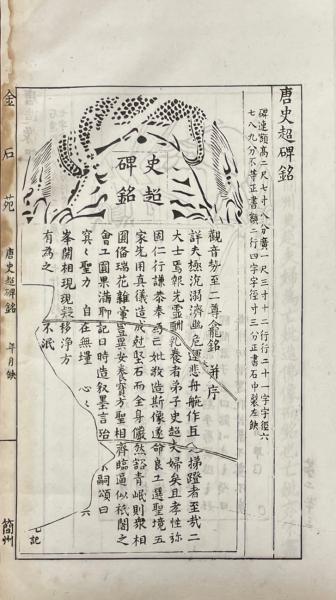 唐史超碑銘
碑連額高二尺七寸八分廣一尺三寸十二行行二十一字字徑六
七八九分不等正書額二行四字字徑寸三分正書石中裂左缺
史超
碑銘
觀音勢至二尊龕銘 并序
詳夫極沉溺濟幽厄運悲舟航作且 梯蹬者至哉二
大士焉爺光靈酬乳養者弟子史超夫婦矣且孝性弥
因仁行謙恭奉為亡妣敬造斯像遂命良工選聖境五
家先用真儀造成尅堅石而全身儼然谿青岷則衆相
圓備瑞花雜 豈異安養寳方聖相齊臨逼似祇闍之
會工圓果滿聊記日時造敘墨言 嗣頌曰
冥 聖力 自在無壃 心 六
峯開相現 移淨方
有為之 不泯
記
金石苑
唐史超碑銘 年月缺
簡州